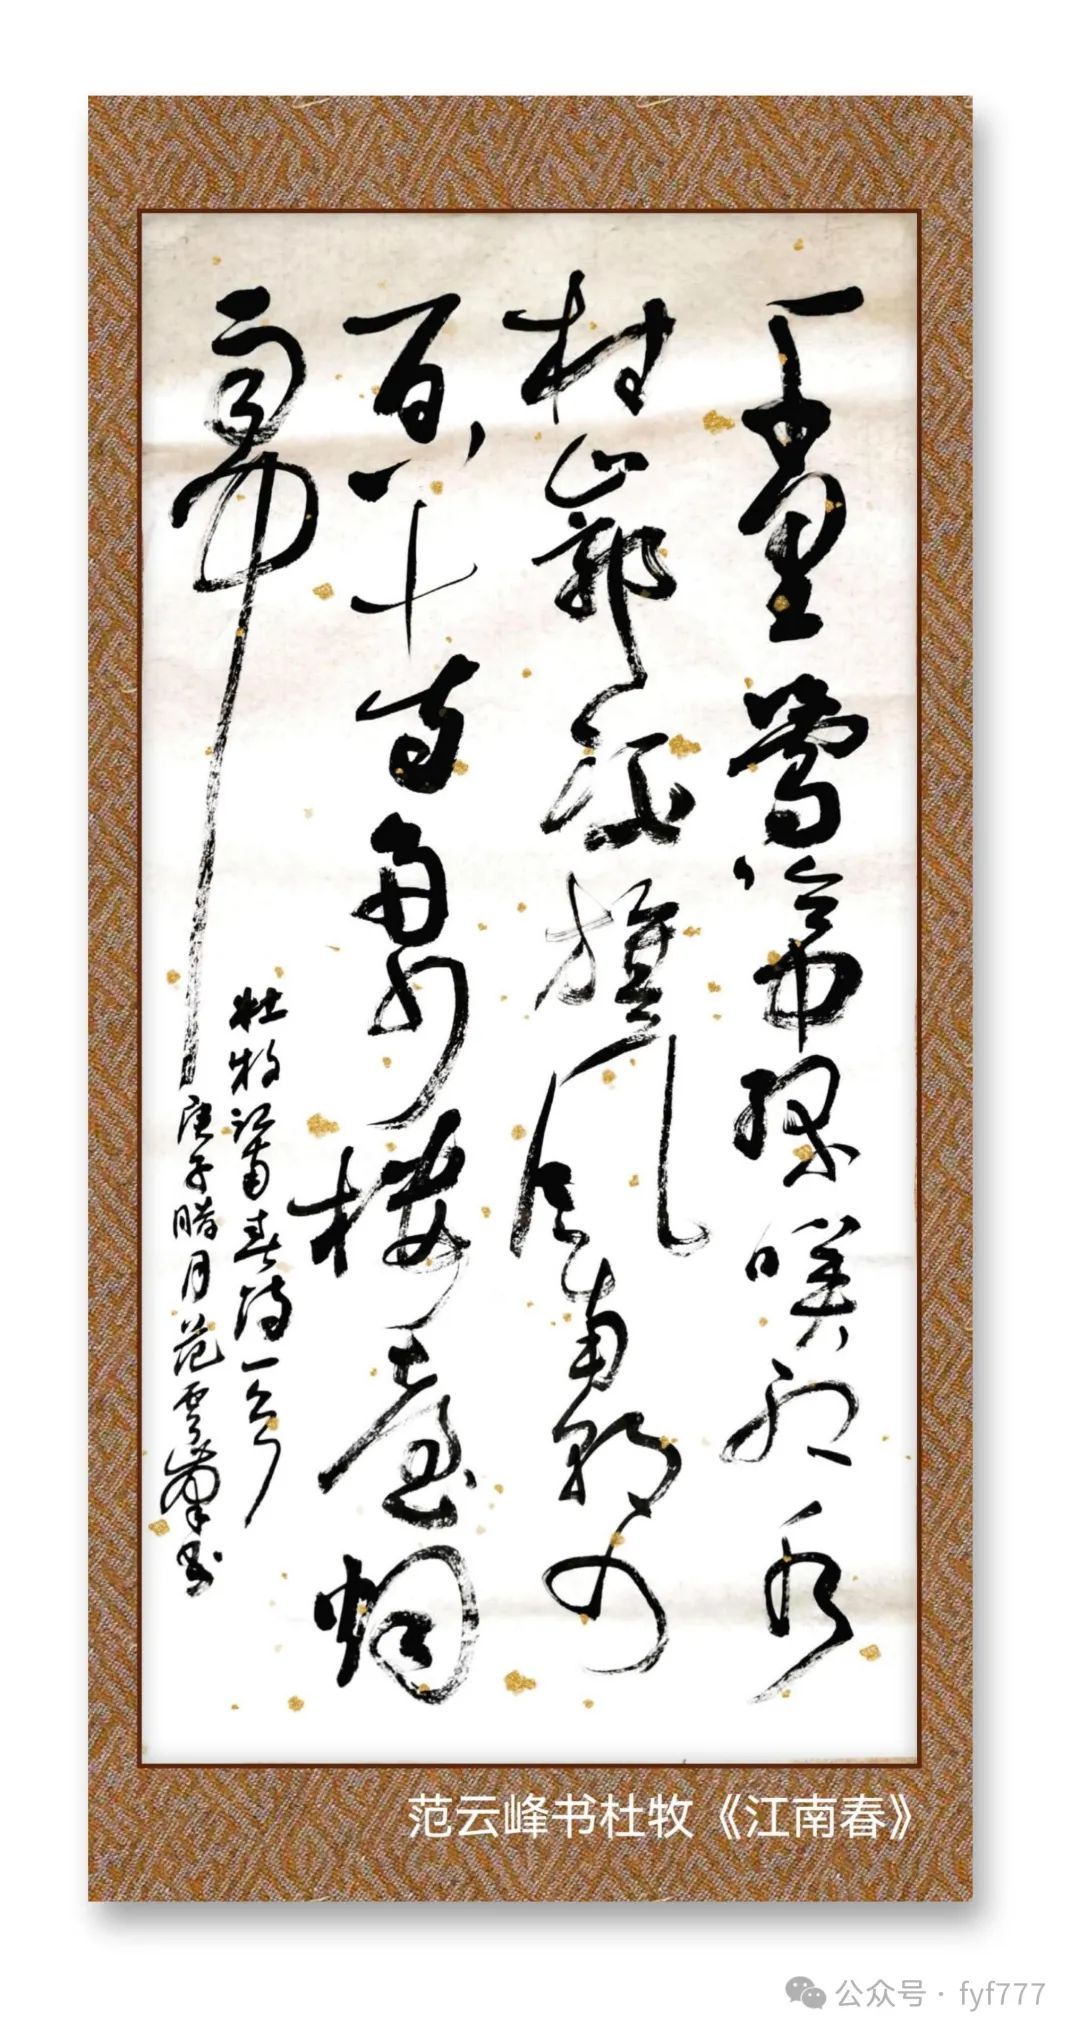 千里鶯啼緑映紅水
村山郭酒旗風南朝四
百八十寺多少樓臺烟
雨中
杜牧江南春詩一首
庚子腊月范雲峯书
范云峰书杜牧《江南春》
公众号·fyf777